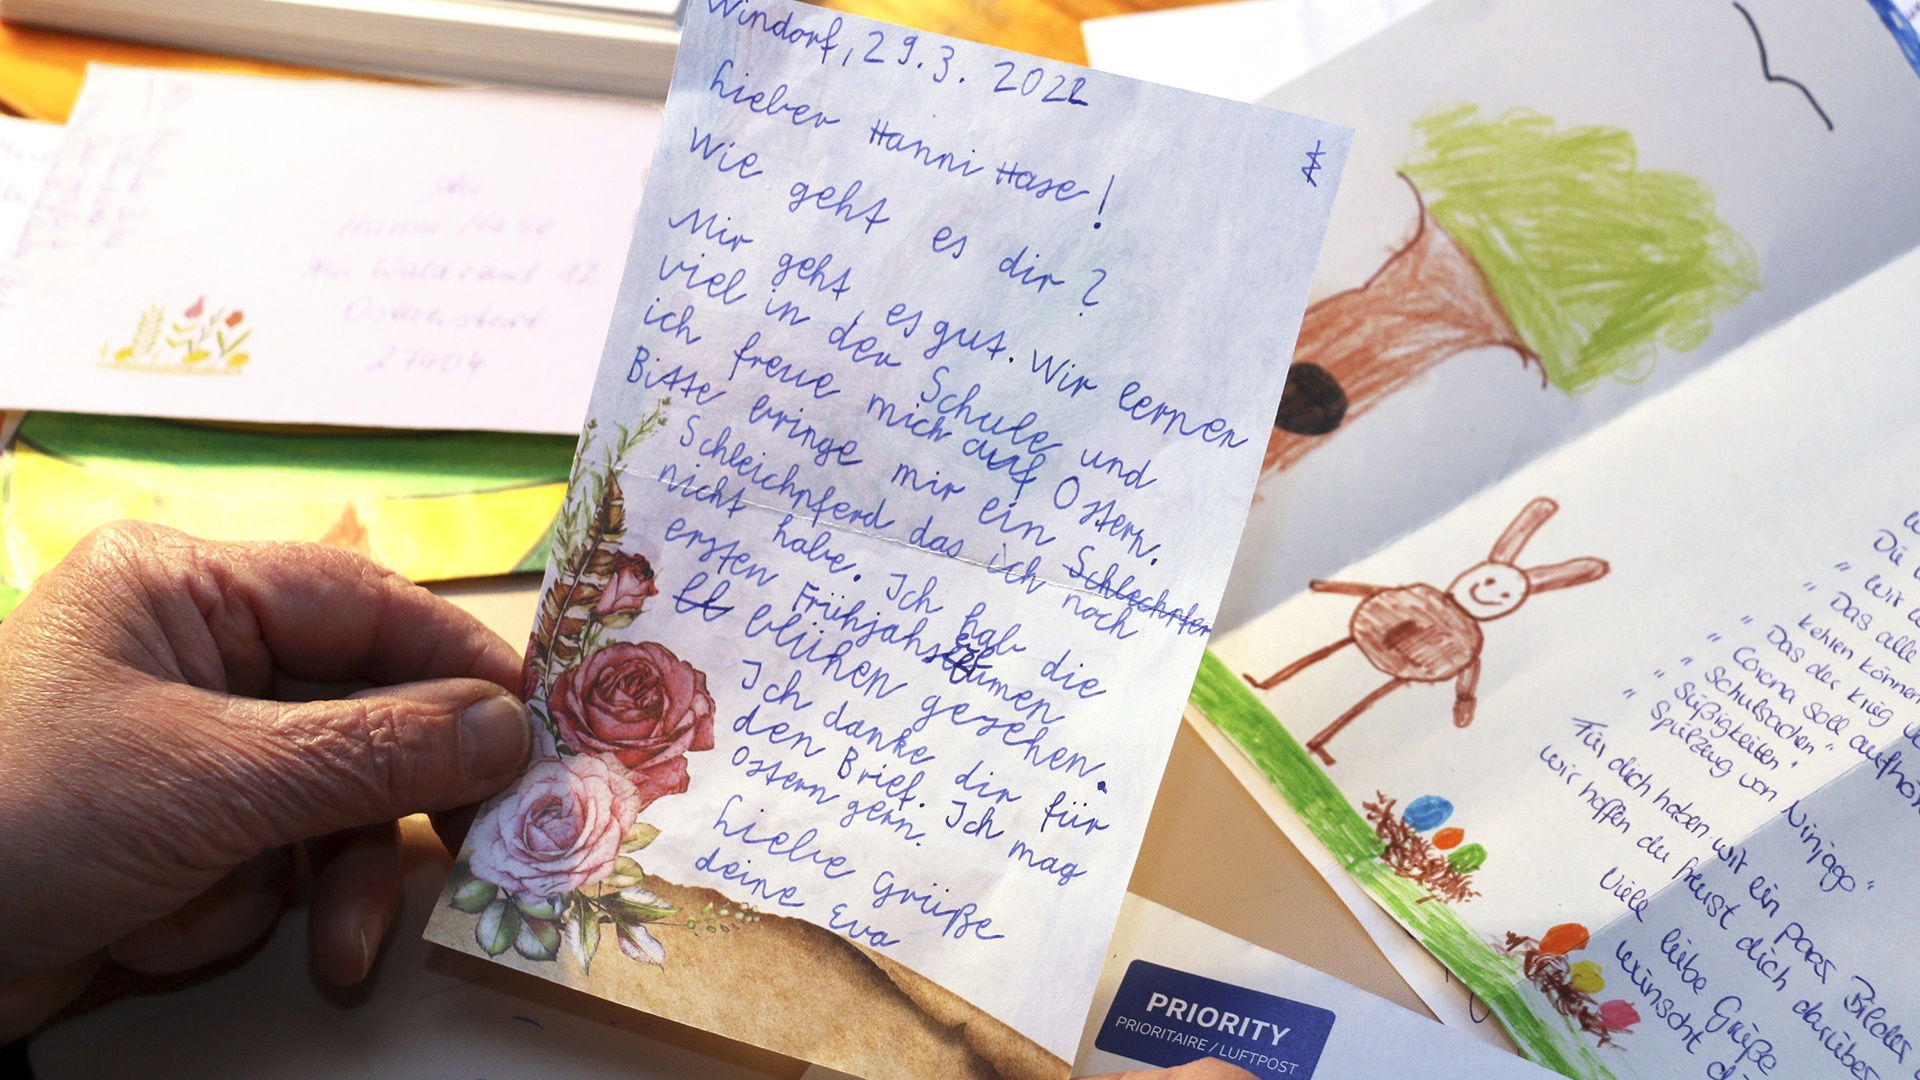 Windorf, 29.3. 2022
Lieber Hanni Hase!
Wie geht es dir?
Mir geht es gut. Wir lernen
viel in der Schule und
ich freue mich auf Ostern.
Bitte bringe mir ein Schlechpfer
Schleichpferd das ich noch
nicht habe. Ich hab die
ersten Frühjahsblumen
bl blühen gesehen.
Ich danke dir für
den Brief. Ich mag
Ostern gern.
Liebe Grüße
deine Eva
Hanni Hase
Am Waldrand 12
Ostereistedt
27404
PRIORITY
PRIORITAIRE / LUFTPOST
Die
" Wir
" Das alle
kehren können
" Das der Krieg
" Corona soll aufhör
" Schulsachen"
" Süßigkeiten"
" Spielzug von Ninjago"
Für dich haben wir ein paar Bilder
wir hoffen du freust dich darüber
Viele liebe Grüße
wünscht